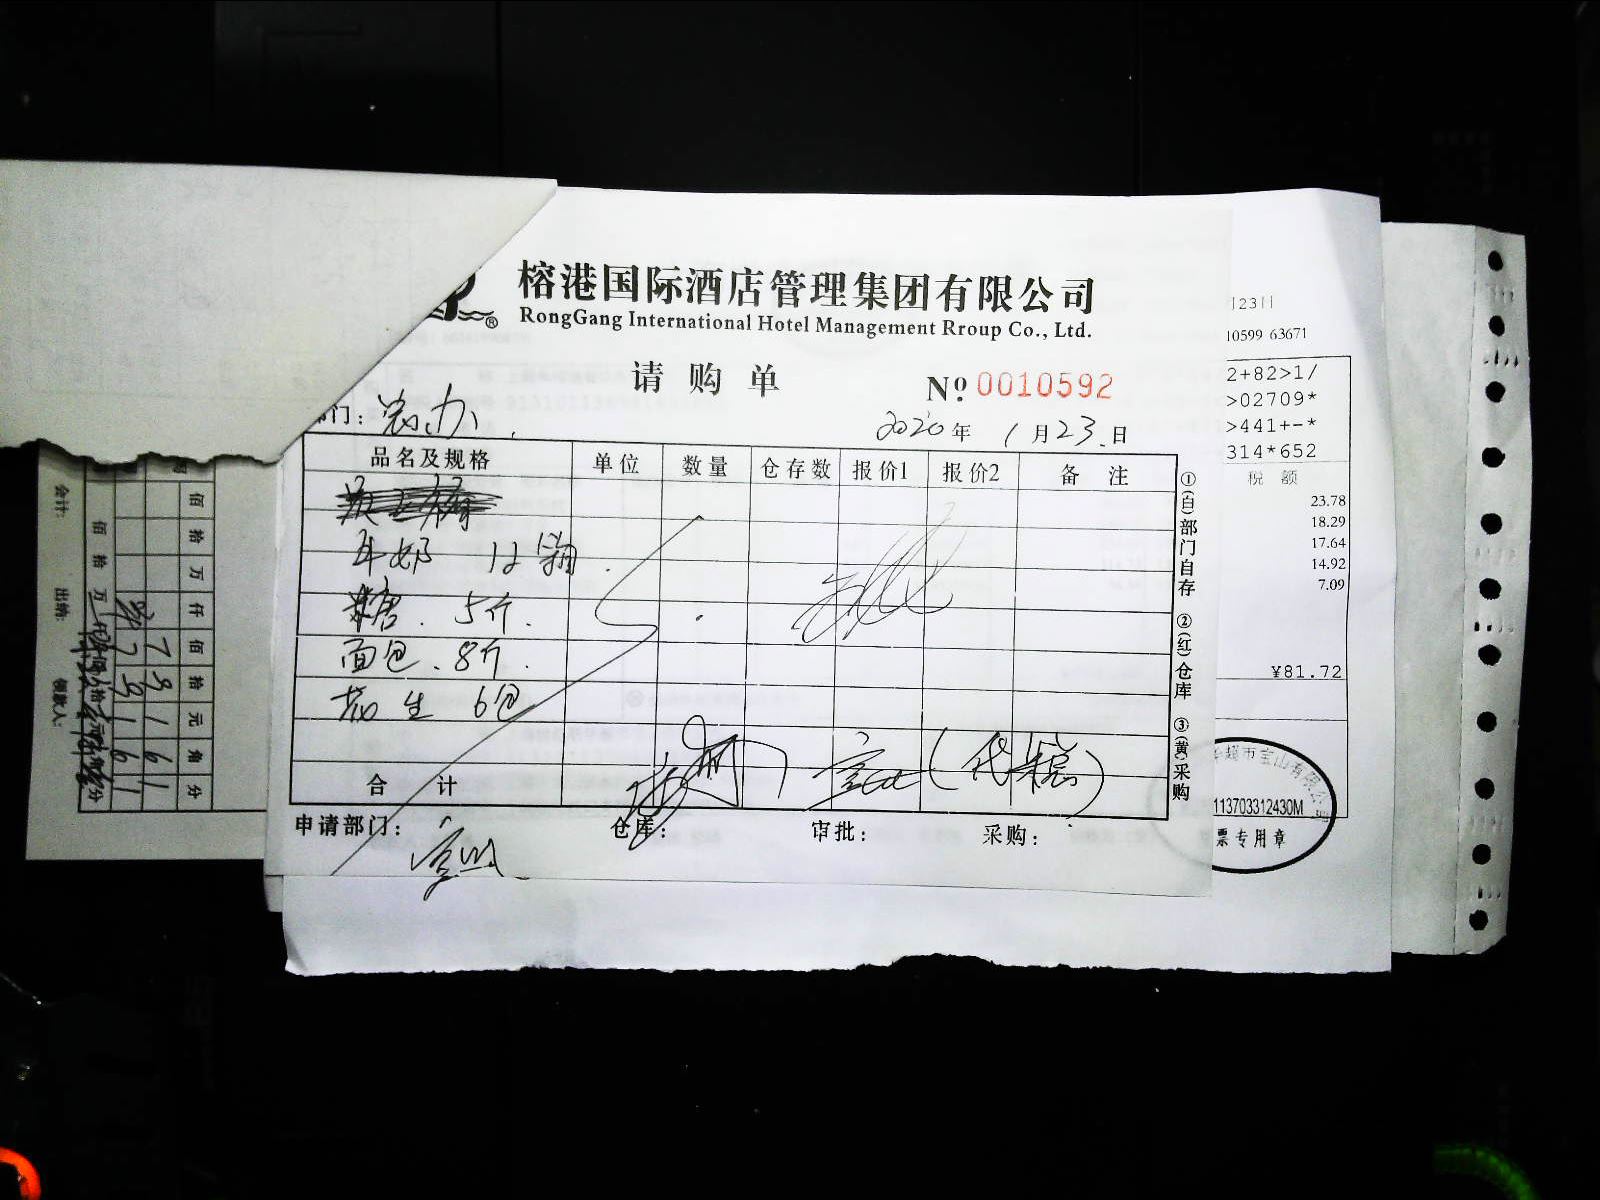 榕港国际酒店管理集团有限公司
®
RongGang International Hotel Management Rroup Co., Ltd.
请购单
№ 0010592
部门: 总办
2020年1月23日
品名及规格 单位 数量 仓存数 报价1 报价2 备注
牛奶 12箱
糖 5斤
面包 8斤
花生 6包
合计
申请部门: 仓库: 审批: 采购:
(代 )
①(白)部门自存 ②(红)仓库 ③(黄)采购
月23日
10599 63671
2+82>1/
>02709*
>441+-*
314*652
税额
23.78
18.29
17.64
14.92
7.09
¥81.72
市宝山有限公司
113703312430M
票专用章
佰拾万仟佰拾元角分
会计: 出纳: 领款人: